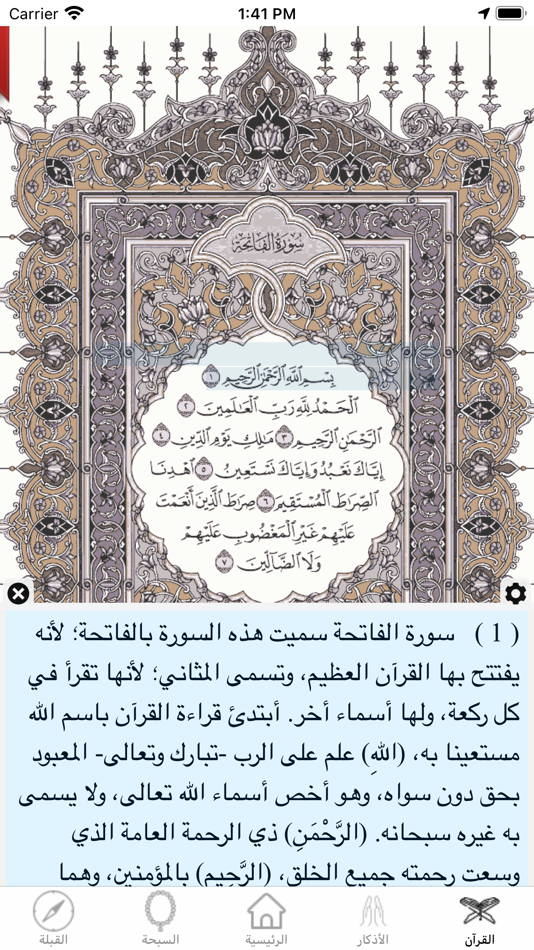 Carrier 1:41 PM
سُورَةُ الفَاتِحَة
بِسْمِ ٱللَّهِ ٱلرَّحْمَٰنِ ٱلرَّحِيمِ ١
ٱلْحَمْدُ لِلَّهِ رَبِّ ٱلْعَٰلَمِينَ ٢
ٱلرَّحْمَٰنِ ٱلرَّحِيمِ ٣ مَٰلِكِ يَوْمِ ٱلدِّينِ ٤
إِيَّاكَ نَعْبُدُ وَإِيَّاكَ نَسْتَعِينُ ٥ ٱهْدِنَا
ٱلصِّرَٰطَ ٱلْمُسْتَقِيمَ ٦ صِرَٰطَ ٱلَّذِينَ أَنْعَمْتَ
عَلَيْهِمْ غَيْرِ ٱلْمَغْضُوبِ عَلَيْهِمْ
وَلَا ٱلضَّآلِّينَ ٧
( 1 ) سورة الفاتحة سميت هذه السورة بالفاتحة؛ لأنه
يفتتح بها القرآن العظيم، وتسمى المثاني؛ لأنها تقرأ في
كل ركعة، ولها أسماء أخر. أبتدئ قراءة القرآن باسم الله
مستعينا به، (اللهِ) علم على الرب -تبارك وتعالى- المعبود
بحق دون سواه، وهو أخص أسماء الله تعالى، ولا يسمى
به غيره سبحانه. (الرَّحْمَنِ) ذي الرحمة العامة الذي
وسعت رحمته جميع الخلق، (الرَّحِيمِ) بالمؤمنين، وهما
القرآن الأذكار الرئيسية السبحة القبلة